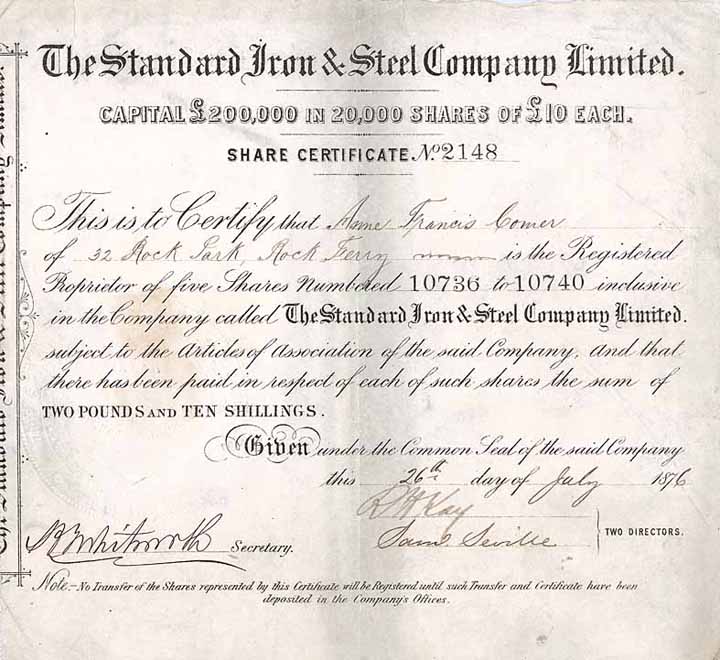 The Standard Iron & Steel Company Limited.
CAPITAL £200,000 IN 20,000 SHARES OF £10 EACH.
SHARE CERTIFICATE. No. 2148
This is to Certify that Anne Francis Comer
of 32 Rock Park, Rock Ferry is the Registered
Proprietor of five Shares Numbered 10736 to 10740 inclusive
in the Company called The Standard Iron & Steel Company Limited.
subject to the Articles of Association of the said Company, and that
there has been paid in respect of each of such shares the sum of
TWO POUNDS AND TEN SHILLINGS.
Given under the Common Seal of the said Company
this 26th day of July 1876
Kay
Sam Seville
TWO DIRECTORS.
Whitworth Secretary.
Note.- No Transfer of the Shares represented by this Certificate will be Registered until such Transfer and Certificate have been
deposited in the Company's Offices.
The Standard Iron & Steel Company Limited.